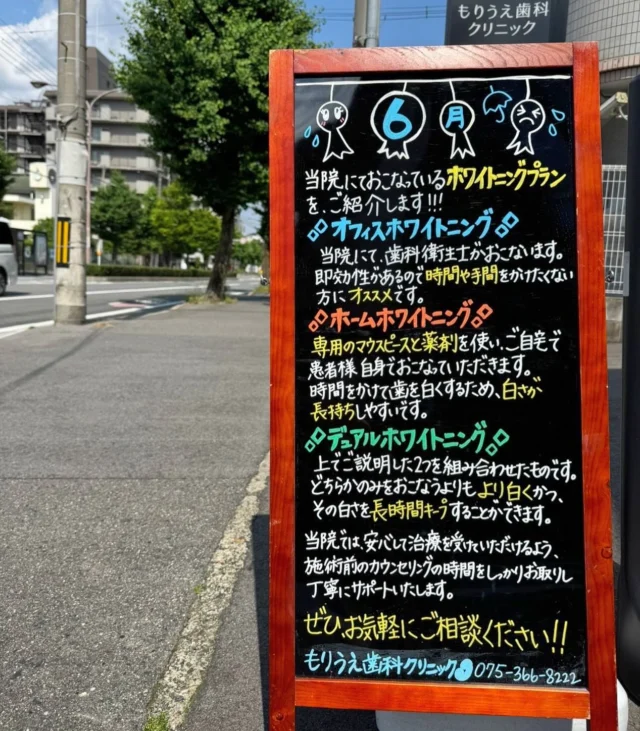 もりうえ歯科
クリニック
6月
当院にておこなっているホワイトニングプラン
を、ご紹介します!!!
オフィスホワイトニング
当院にて、歯科衛生士がおこないます。
即効性があるので時間や手間をかけたくない
方にオススメです。
ホームホワイトニング
専用のマウスピースと薬剤を使い、ご自宅で
患者様自身でおこなっていただきます。
時間をかけて歯を白くするため、白さが
長持ちしやすいです。
デュアルホワイトニング
上でご説明した2つを組み合わせたものです。
どちらかのみをおこなうよりもより白くかつ、
その白さを長時間キープすることができます。
当院では、安心して治療を受けいただけるよう、
施術前のカウンセリングの時間をしっかりお取りし
丁寧にサポートいたします。
ぜひ、お気軽にご相談ください!!
もりうえ歯科クリニック 075-366-8222